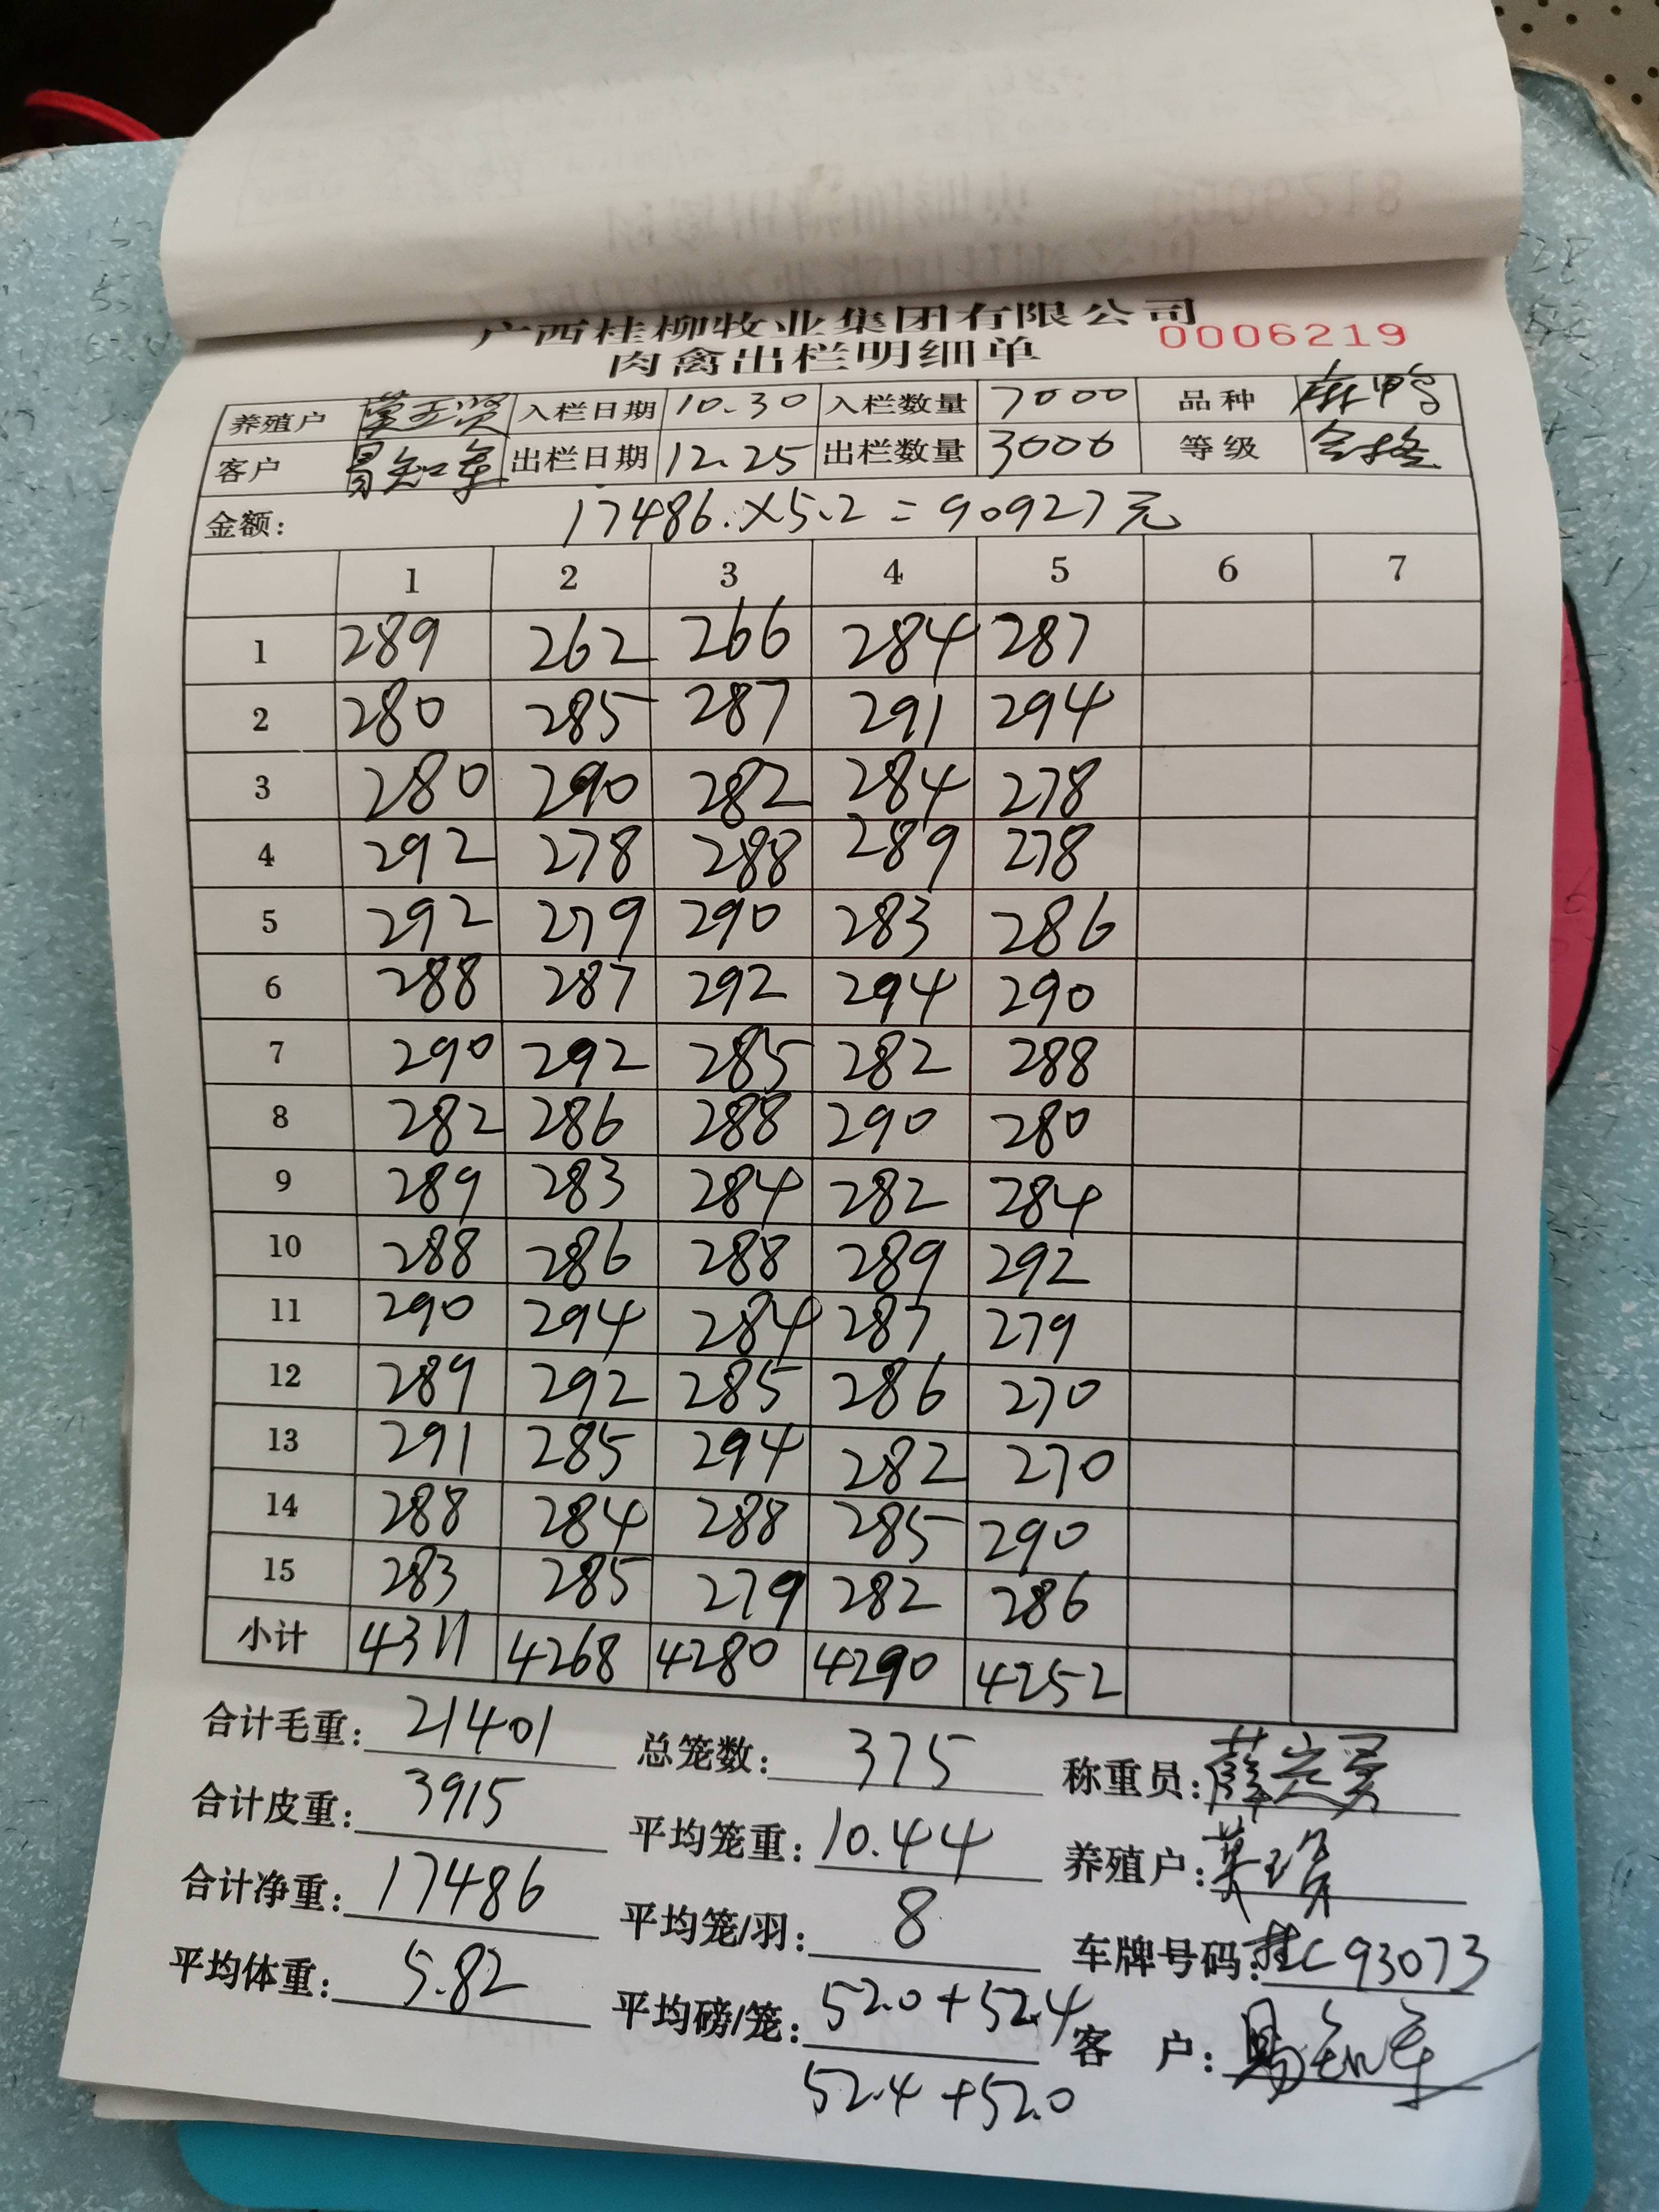 广西桂柳牧业集团有限公司
肉禽出栏明细单 0006219
养殖户 莫玉贤 入栏日期 10.30 入栏数量 7000 品种 麻鸭
客户 易知军 出栏日期 12.25 出栏数量 3000 等级 合格
金额: 17486.×5.2=90927元
1 2 3 4 5 6 7
1 289 262 266 284 287
2 280 285 287 291 294
3 280 290 282 284 278
4 292 278 288 289 278
5 292 279 290 283 286
6 288 287 292 294 290
7 290 292 285 282 288
8 282 286 288 290 280
9 289 283 284 282 284
10 288 286 288 289 292
11 290 294 284 287 279
12 289 292 285 286 270
13 291 285 294 282 270
14 288 284 288 285 290
15 283 285 279 282 286
小计 4311 4268 4280 4290 4252
合计毛重: 21401 总笼数: 375 称重员:
合计皮重: 3915 平均笼重: 10.44 养殖户:
合计净重: 17486 平均笼/羽: 8 车牌号码: 桂C93073
平均体重: 5.82 平均磅/笼: 52.0+52.4 客 户: 易知军
52.4+52.0